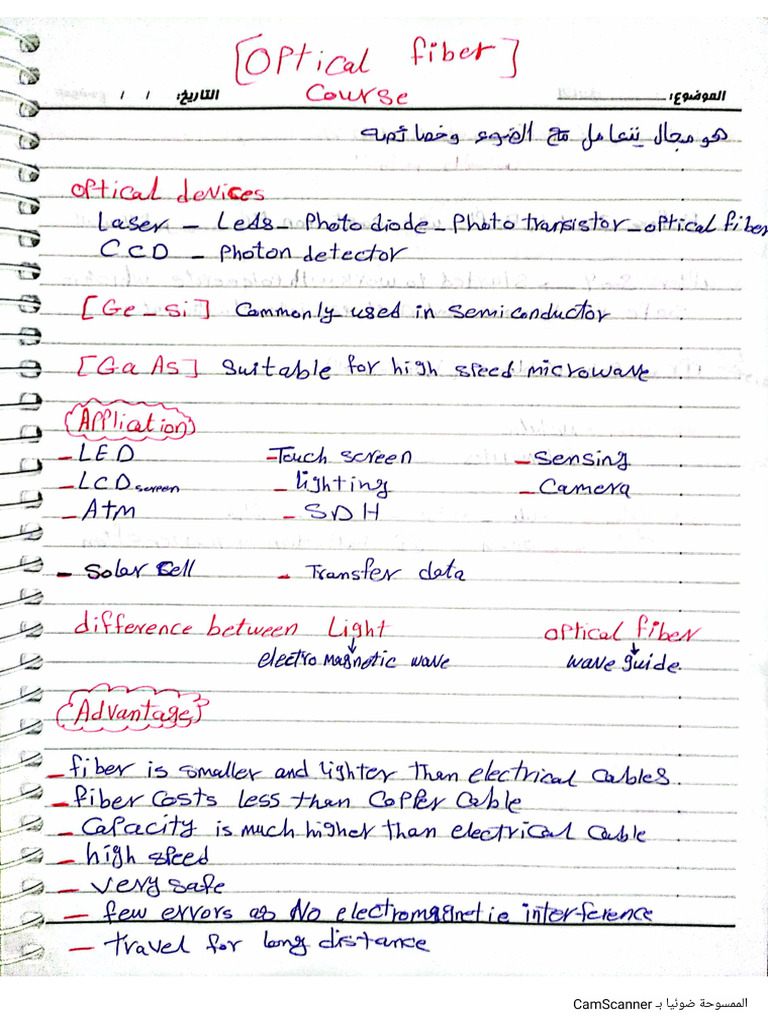 [Optical fiber]
الموضوع: التاريخ: / /
Course
هو مجال يتعامل مع الضوء وخصائصه
optical devices
Laser - Leds - Photo diode - Photo transistor - optical fiber
CCD - Photon detector
[Ge - Si] Commonly used in semiconductor
[Ga As] Suitable for high speed microwave
Application
- LED - Touch screen - Sensing
- LCD screen - lighting - Camera
- ATM - SDH
- Solar Cell - Transfer data
difference between Light optical fiber
electro magnetic wave wave guide
Advantage
- fiber is smaller and lighter than electrical cables
- fiber costs less than Copper Cable
- Capacity is much higher than electrical cable
- high speed
- very safe
- few errors as No electromagnetic interference
- travel for long distance
الممسوحة ضوئيا بـ CamScanner